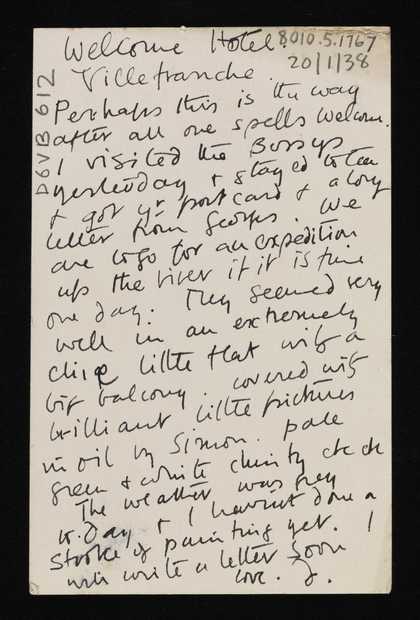 Welcome Hotel.
8010.5.1767
20/1/38
Villefranche.
D6VB 612
Perhaps this is the way
after all one spells Welcome.
I visited the Bussys
yesterday & stayed to tea
& got yr postcard & a long
letter from Georges. We
are to go for an expedition
up the river if it is fine
one day. They seemed very
well in an extremely
chic little flat with a
big balcony. covered with
brilliant little pictures
in oil by Simon. pale
green & white chintz etc etc
The weather was grey
to-day & I havint done a
stroke of painting yet. I
will write a letter soon
love. J.